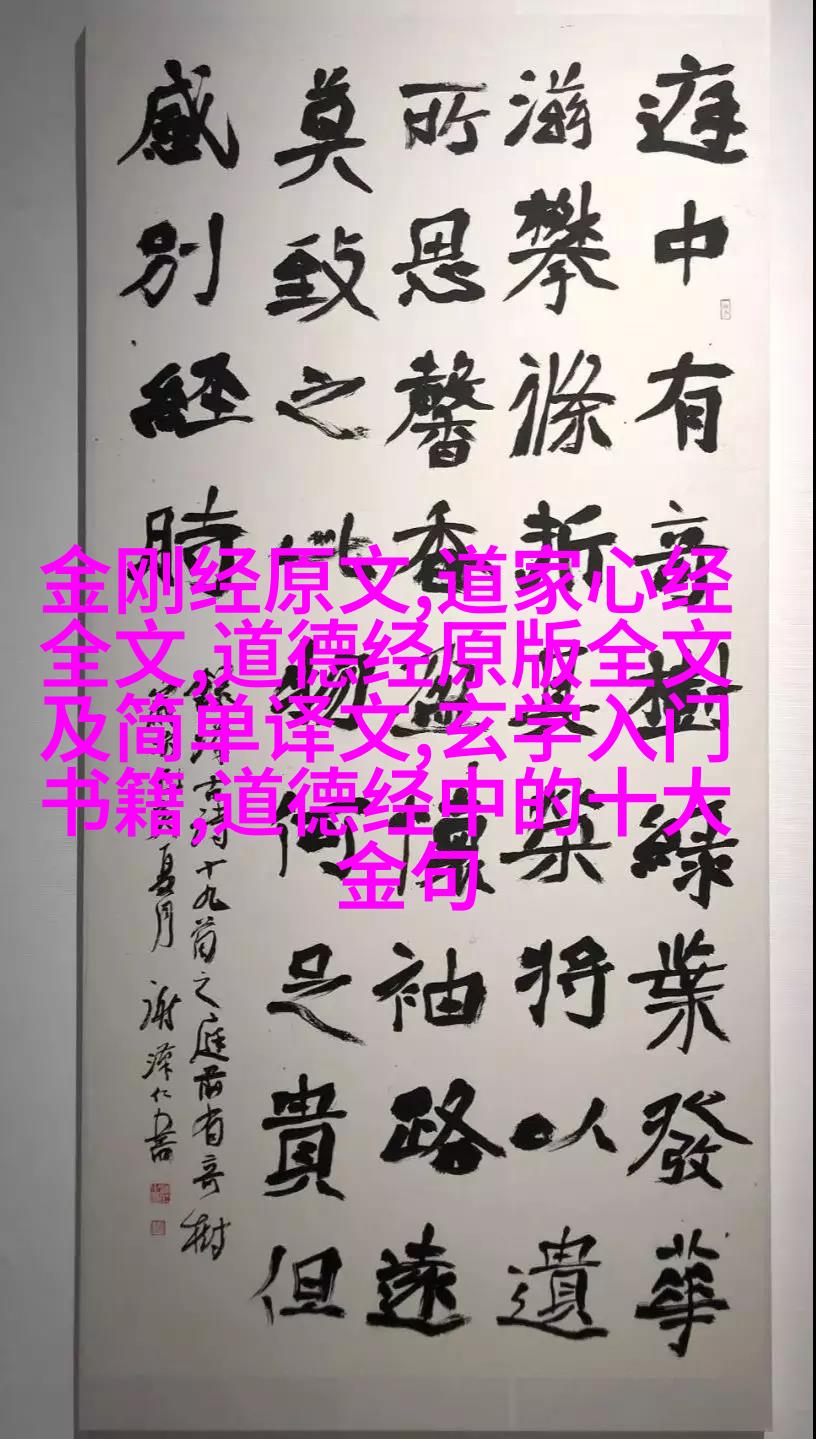 金刚经原文,道家心经
全文,道德经原版全文
及简单译文,玄学入门
书籍,道德经中的十大
金句
庭中有奇樹綠葉發華
滋攀條折其榮將以遺
所思馨香盈懷袖路遠
莫致之此物何足貴但
感別經時
古詩十九首之庭前有奇樹
夏月 謝澤仁書